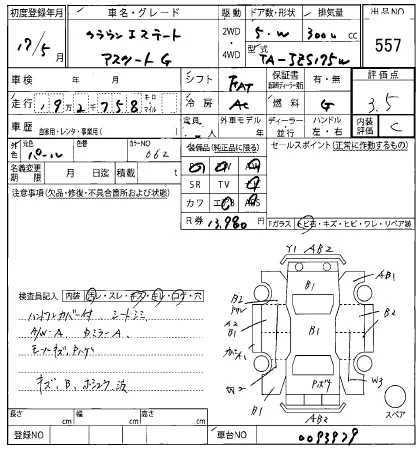 初度登録年月 車名・グレード 駆動 ドア数・形状 排気量 出品NO
17/5 クラウンエステート アスリートG 2WD・4WD 5.W 3000 cc 557
型式 TA-JZS175W
車検 年 月 シフト FAT 保証書 有・無 評価点 3.5
走行 192758 キロ・マイル 冷房 AC 燃料 G
車歴 自家用・レンタ・事業用( ) 定員 人 外車モデル 年 ディーラー・並行 ハンドル 左・右 内装評価 C
外色 元色 パール 色替 カラーNO 062 装備品(純正品に限る) セールスポイント(正常に作動するもの)
名義変更期限 月 日迄 積載 t SR TV
注意事項(欠品・修復・不具合箇所および状態) カワ エアB ABS
R券 13,980 Fガラス トビ石・キズ・ヒビ・ワレ・リペア跡
Y1 AB2
AB1
B1
B2
B2
A2
B1
B1
検査員記入 内装 汚レ・スレ・キズ・キレ・コゲ・穴
ハンドルカバー付 シートシミ
A/W-A Dミラー A
モールキズ、Pハゲ
キズ、B、ホシュウ波
W3
B1
B1
AB2
スペア
長さ cm 幅 cm 高さ cm
登録NO 車台NO 0093929